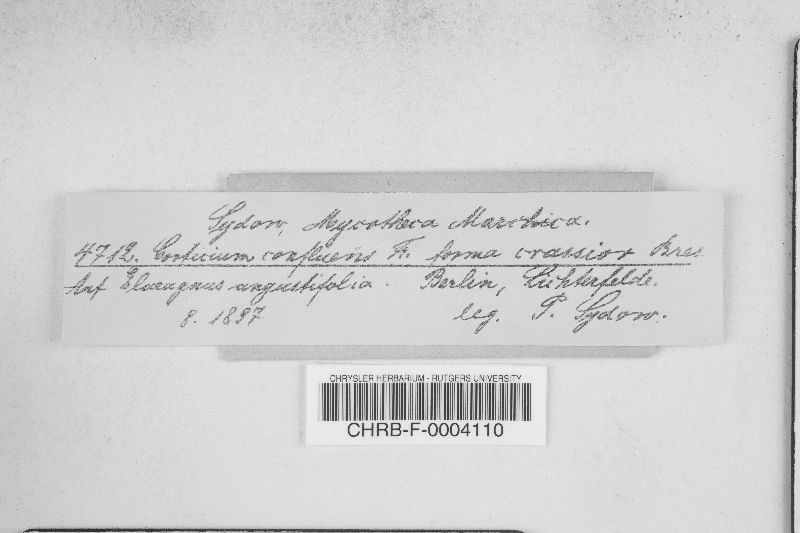 Sydow, Mycotheca Marchica.
4712. Corticium confluens Fr. forma crassior Bres.
Auf Elaeagnus angustifolia. Berlin, Lichterfelde.
8. 1897 leg. P. Sydow.
CHRYSLER HERBARIUM - RUTGERS UNIVERSITY
CHRB-F-0004110